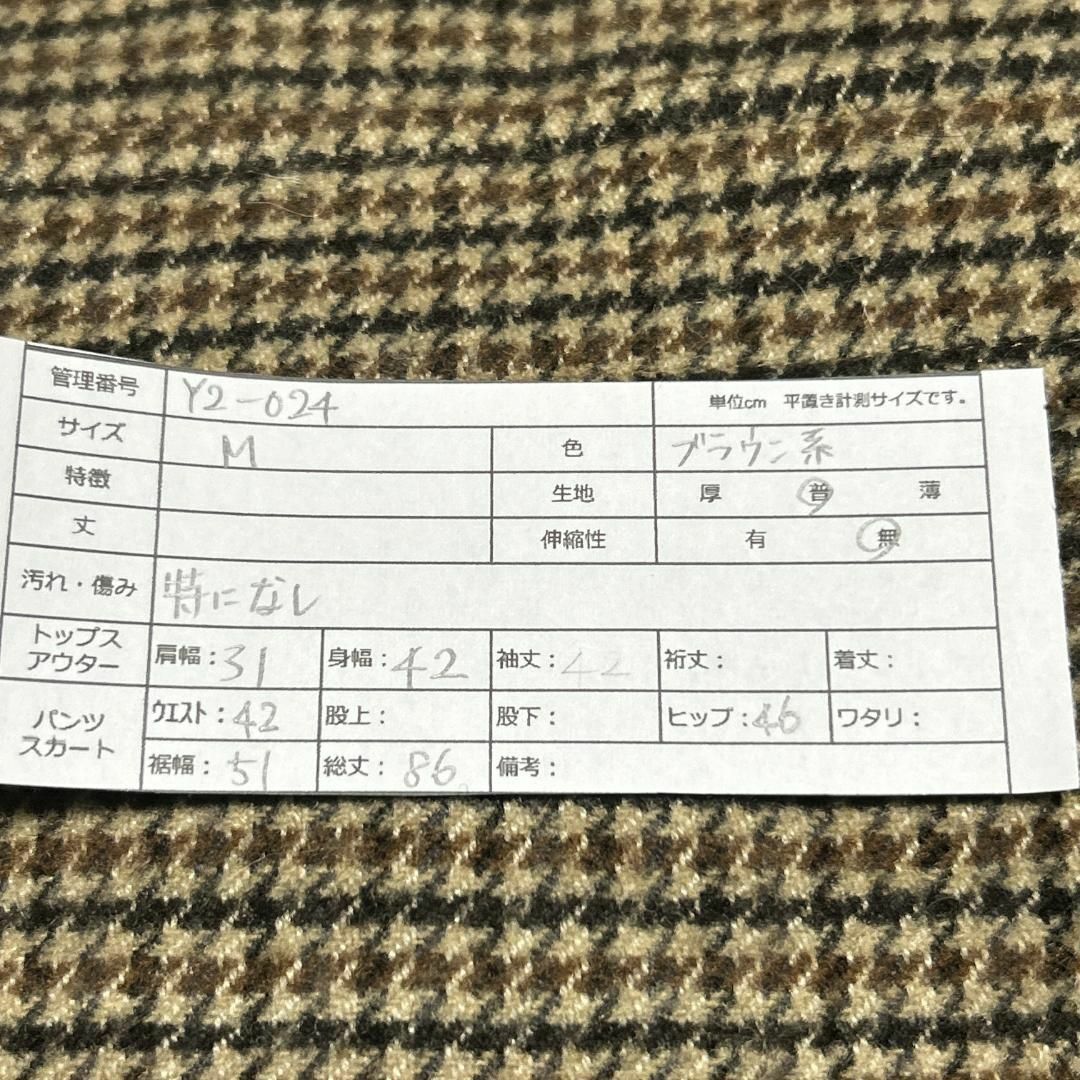 管理番号 Y2-024 単位cm 平置き計測サイズです。
サイズ M 色 ブラウン系
特徴 生地 厚 普 薄
丈 伸縮性 有 無
汚れ・傷み 特になし
トップス
アウター
肩幅：31 身幅：42 袖丈：42 裄丈： 着丈：
パンツ
スカート
ウエスト：42 股上： 股下： ヒップ：46 ワタリ：
裾幅：51 総丈：86 備考：